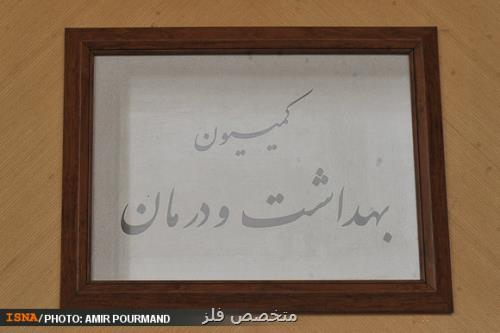 کمیسیون
بهداشت و درمان
ISNA/PHOTO: AMIR POURMAND
متخصص فلز